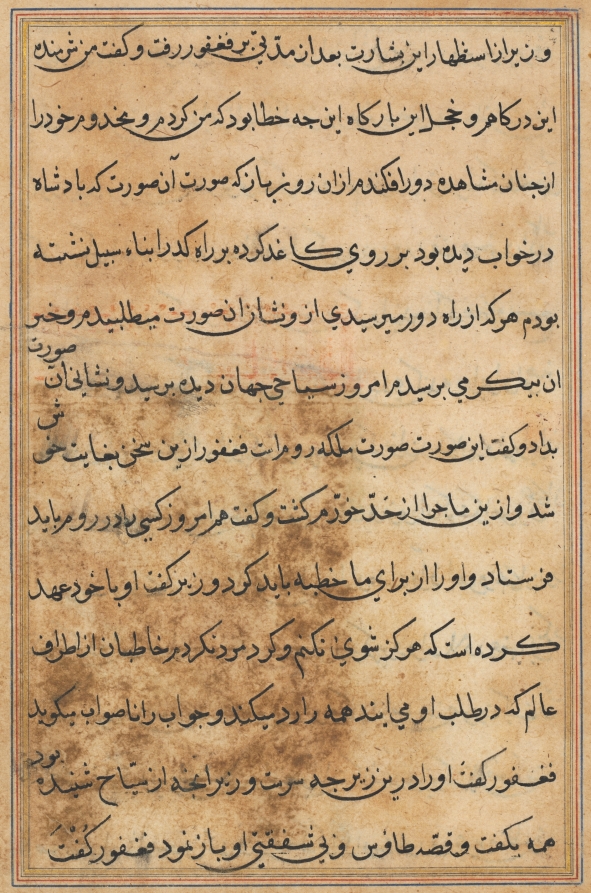 وزیر از استظهار این بشارت بعد از مدتی بر فغفور رفت و کفت من شرمنده
این درکاهم و خجل این بارکاه این جه خطا بود که من کردم و مخدوم خود را
از جنان مشاهده دور افکندم از ان روز باز که صورت آن صورت که بادشاه
در خواب دیده بود بر روی کاغد کرده بر راه کدر ابناء سبیل نشسته
بودم هر که از راه دور میرسیدی از و نشان ان صورت میطلبیدم و خبر
ان بیکر می برسیدم امروز سیاحی جهان دیده برسید و نشانی آن صورت
بداد و کفت این صورت صورت ملکه روم است فغفور ازین سخن بغایت خوش
شد و ازین ماجرا از حدّ خوّرم کشت و کفت هم امروز کسی را در روم باید
فرستاد و او را از برای ما خطبه باید کرد وزیر کفت او با خود عهد
کرده است که هرکز شوی نکنم و کرد مرد نکردم خاطبان از اطراف
عالم که در طلب او می ایند همه را رد میکند و جواب را ناصواب میکوید
فغفور کفت او را درین زیر جه سرست وزیر انجه از سیّاح شنیده بود
همه بکفت و قصّه طاؤس و بی شفقتی او باز نمود فغفور کُفْتَ